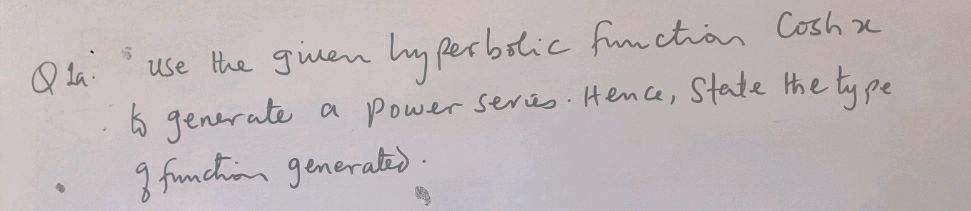 Q 1a. use the given hyperbolic function Cosh x
to generate a power series. Hence, State the type
of function generated.